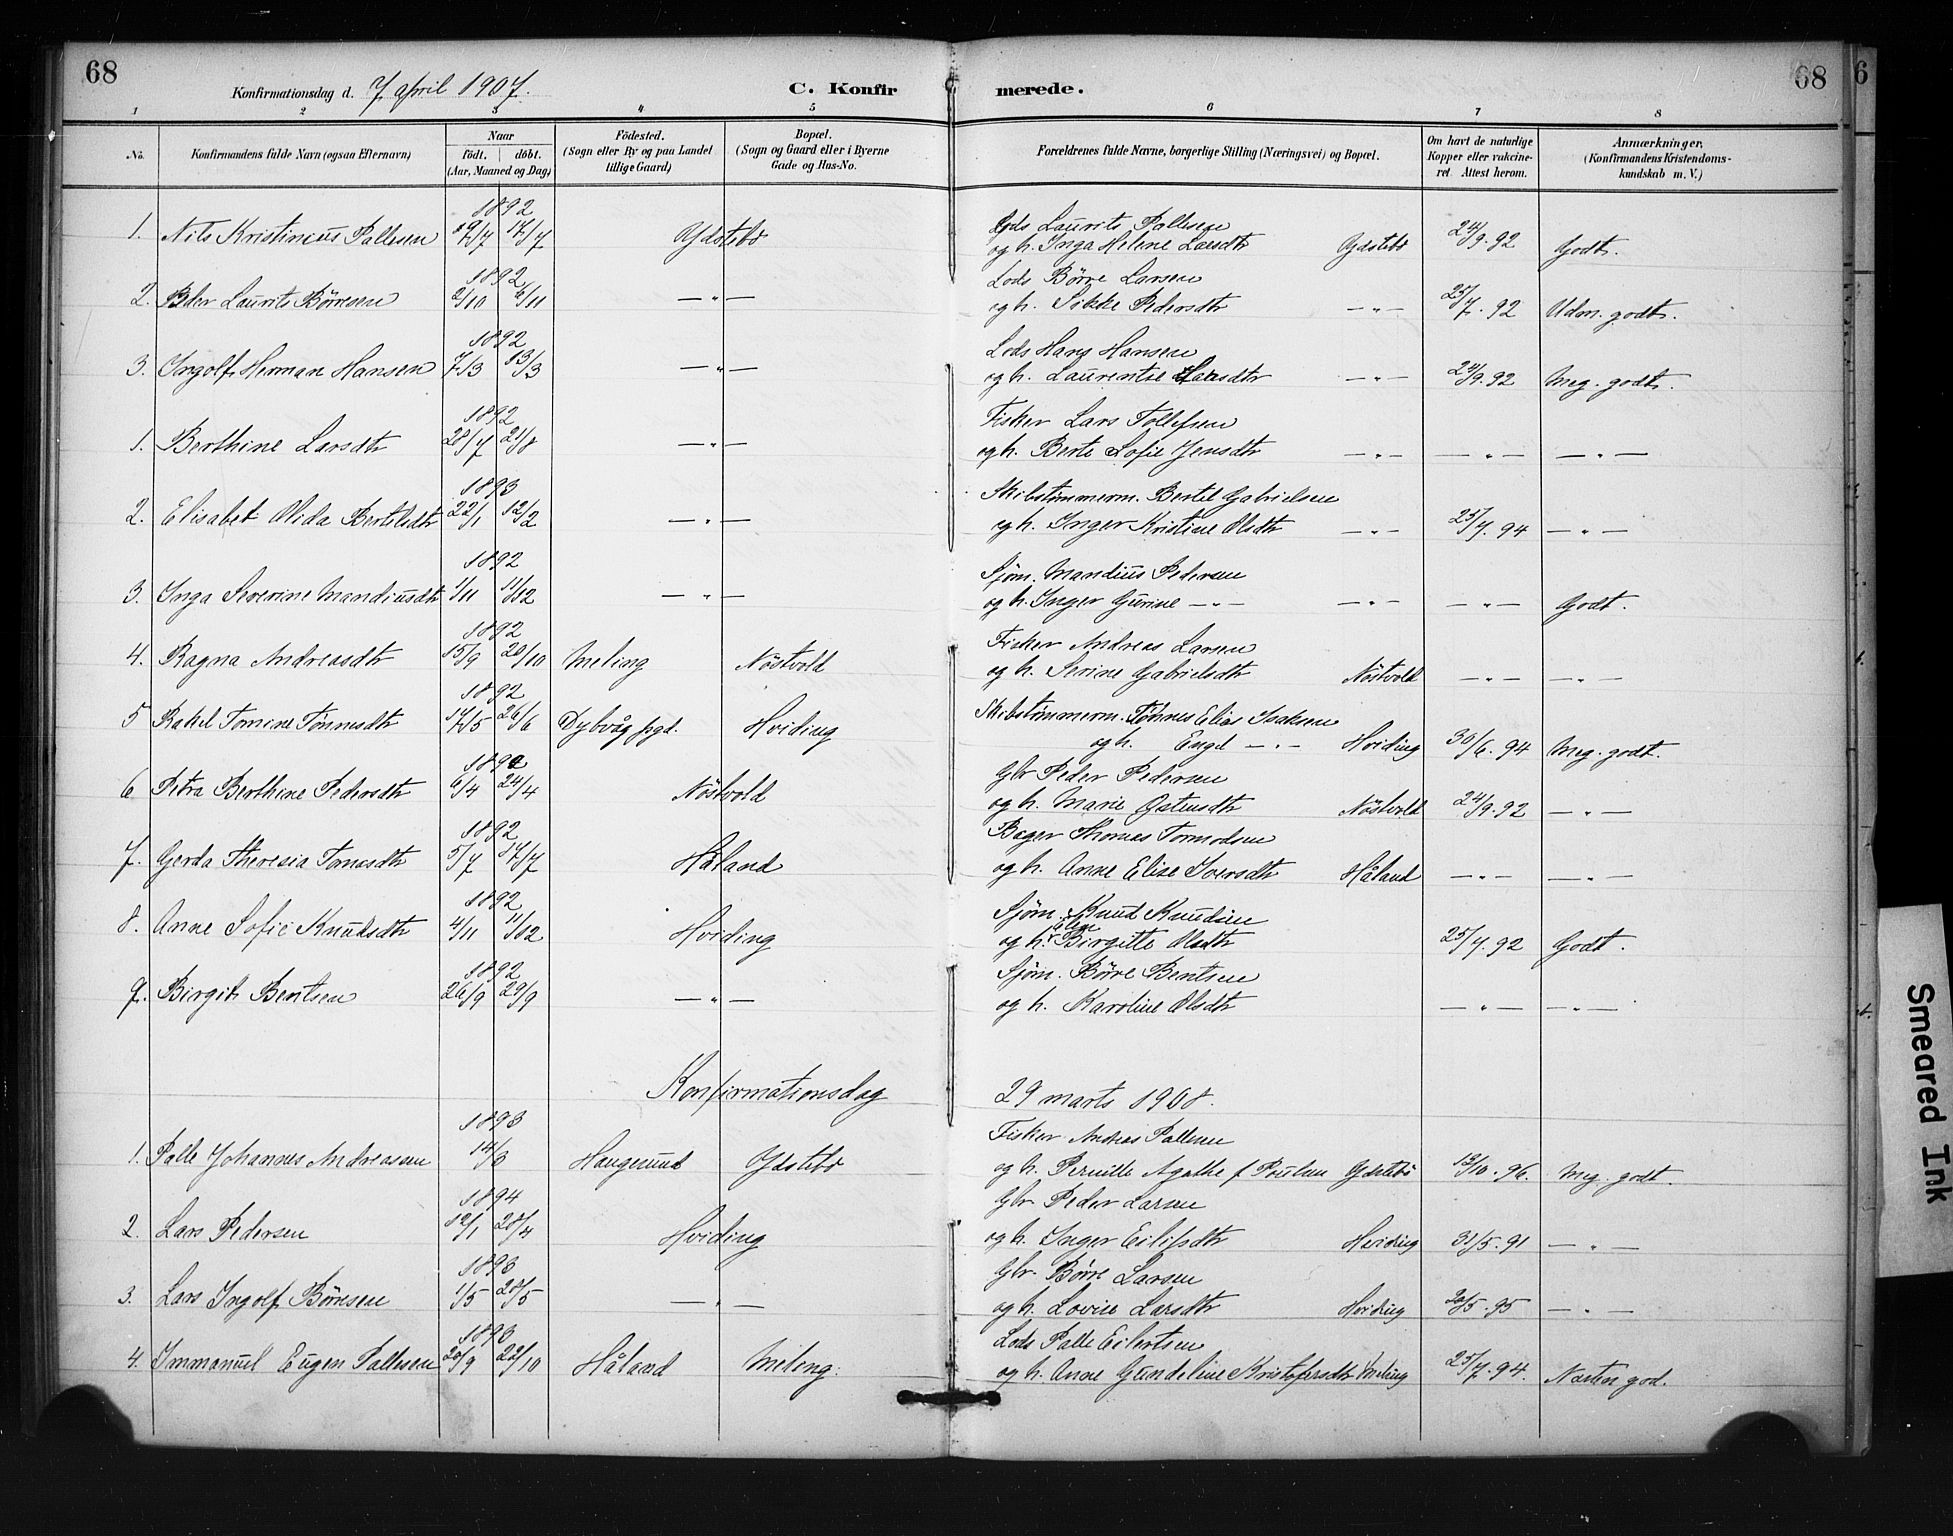 68
Konfirmationsdag d. 7 april 1907.
C. Konfirmerede.
68
6
1 2 3 4 5 6 7 8
No. Konfirmandens fulde Navn (ogsaa Efternavn)
Naar født. døbt. (Aar, Maaned og Dag)
Fødested. (Sogn eller By og paa Landet tillige Gaard)
Bopæl. (Sogn og Gaard eller i Byerne Gade og Hus-No.
Forældrenes fulde Navne, borgerlige Stilling (Næringsvei) og Bopæl.
Om havt de naturlige Kopper eller vakcineret. Attest herom.
Anmærkninger, (Konfirmandens Kristendomskundskab m. V.)
1892 Lods Laurits Pallesen
1. Nils Kristinius Pallesen 17/7 Ydstebø og h. Inga Helene Larsdtr Ydstebø 24/9.92 Godt.
1892 Lods Børre Larsen
2. Peder Laurits Børresen 2/10 6/11 — " — og h. Sikke Pedersdtr — " — 25/7.92 Udm. godt.
1892 Lods Hans Hansen
3. Ingolf Herman Hansen 7/3 13/3 — " — og h. Laurentse Larsdtr — " — 24/9.92 Meg. godt.
1892 Fisker Lars Tollefsen
1. Berthine Larsdtr 28/7 21/8 — " — og h. Berte Sofie Jensdtr — " — — " — — " —
1893 Skibstømmerm. Bertel Gabrielsen
2. Elisabet Olida Bertelsdtr 22/1 12/2 — " — og h. Inger Kristine Olsdtr — " — 25/7.94 — " —
1892 Sjøm. Mandius Pedersen
3. Inga Severine Mandiusdtr 1/11 11/12 — " — og h. Inger Gurine — " — — " — — " — Godt.
1892 Fisker Andreas Larsen
4. Ragna Andreasdtr 15/9 20/10 Meling Nöstvold og h. Serine Gabrielsdtr Nöstvold — " — — " —
1892 Skibstømmerm. Tønnes Elias Isaksen
5 Rakel Tomine Tönnesdtr 14/5 26/6 Dybvåg pgd. Hviding og h. Engel — " — Hviding 30/6.94 Meg. godt.
1892 Gbr Peder Pedersen
6 Petra Berthine Pedersdtr 6/4 24/4 Nöstvold og h. Marie Ostensdtr Nöstvold 24/9.92 — " —
1892 Bager Thomas Tormodsen
7. Gerda Theresia Tomasdtr 5/7 17/7 Håland og h. Anne Elise Iversdtr Håland — " — — " —
1892 Sjøm. Knud Knudsen
8. Anne Sofie Knudsdtr 4/11 11/12 Hviding og h. Birgitte Olsdtr 25/7.92 Godt.
1892 Sjøm. Børre Bentsen
9. Birgit Bentsen 26/9 29/9 — " — og h. Karoline Olsdtr — " — — " —
Konfirmationsdag 29 marts 1908.
1893 Fisker Andreas Pallesen
1. Palle Johannes Andreassen 14/3 Haugesund Ydstebø og h. Pernille Agathe f. Poulsen Ydstebø 13/10.96. Meg. godt.
1894 Gbr Peder Larsen
2. Lars Pedersen 12/1 28/4 Hviding og h. Inger Eilifsdtr Hviding 31/5.91 — " —
1893 Gbr. Børre Larsen
3. Lars Ingolf Börresen 1/5 28/5 — " — og h. Lovise Larsdtr Hviding 20/5.95 — " —
1893 Lods Palle Eilertsen
4. Immanuel Eugen Pallesen 20/9 22/10 Håland Meling. og h. Anne Gundeline Kristofersdtr Meling 25/7.94. Næsten god.
Smeared Ink